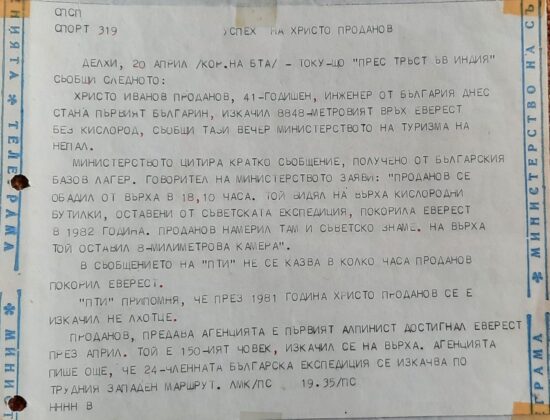 СПСП
СПОРТ 319 УСПЕХ НА ХРИСТО ПРОДАНОВ
ДЕЛХИ, 20 АПРИЛ /КОР.НА БТА/ - ТОКУ-ЩО "ПРЕС ТРЪСТ ЪВ ИНДИЯ"
СЪОБЩИ СЛЕДНОТО:
ХРИСТО ИВАНОВ ПРОДАНОВ, 41-ГОДИШЕН, ИНЖЕНЕР ОТ БЪЛГАРИЯ ДНЕС
СТАНА ПЪРВИЯТ БЪЛГАРИН, ИЗКАЧИЛ 8848-МЕТРОВИЯТ ВРЪХ ЕВЕРЕСТ
БЕЗ КИСЛОРОД, СЪОБЩИ ТАЗИ ВЕЧЕР МИНИСТЕРСТВОТО НА ТУРИЗМА НА
НЕПАЛ.
МИНИСТЕРСТВОТО ЦИТИРА КРАТКО СЪОБЩЕНИЕ, ПОЛУЧЕНО ОТ БЪЛГАРСКИЯ
БАЗОВ ЛАГЕР. ГОВОРИТЕЛ НА МИНИСТЕРСТВОТО ЗАЯВИ: "ПРОДАНОВ СЕ
ОБАДИЛ ОТ ВЪРХА В 18,10 ЧАСА. ТОЙ ВИДЯЛ НА ВЪРХА КИСЛОРОДНИ
БУТИЛКИ, ОСТАВЕНИ ОТ СЪВЕТСКАТА ЕКСПЕДИЦИЯ, ПОКОРИЛА ЕВЕРЕСТ
В 1982 ГОДИНА. ПРОДАНОВ НАМЕРИЛ ТАМ И СЪВЕТСКО ЗНАМЕ. НА ВЪРХА
ТОЙ ОСТАВИЛ 8-МИЛИМЕТРОВА КАМЕРА".
В СЪОБЩЕНИЕТО НА "ПТИ" НЕ СЕ КАЗВА В КОЛКО ЧАСА ПРОДАНОВ
ПОКОРИЛ ЕВЕРЕСТ.
"ПТИ" ПРИПОМНЯ, ЧЕ ПРЕЗ 1981 ГОДИНА ХРИСТО ПРОДАНОВ СЕ Е
ИЗКАЧИЛ НЕ ЛХОТЦЕ.
ПРОДАНОВ, ПРЕДАВА АГЕНЦИЯТА Е ПЪРВИЯТ АЛПИНИСТ ДОСТИГНАЛ ЕВЕРЕСТ
ПРЕЗ АПРИЛ. ТОЙ Е 150-ИЯТ ЧОВЕК, ИЗКАЧИЛ СЕ НА ВЪРХА. АГЕНЦИЯТА
ПИШЕ ОЩЕ, ЧЕ 24-ЧЛЕННАТА БЪЛГАРСКА ЕКСПЕДИЦИЯ СЕ ИЗКАЧВА ПО
ТРУДНИЯ ЗАПАДЕН МАРШРУТ. ЛМК/ПС 19.35/ПС
НННН В
НИЯТА * ТЕЛЕГРАМА * МИНИСТ
ГРАМА * МИНИСТЕРСТВО НА СЪ